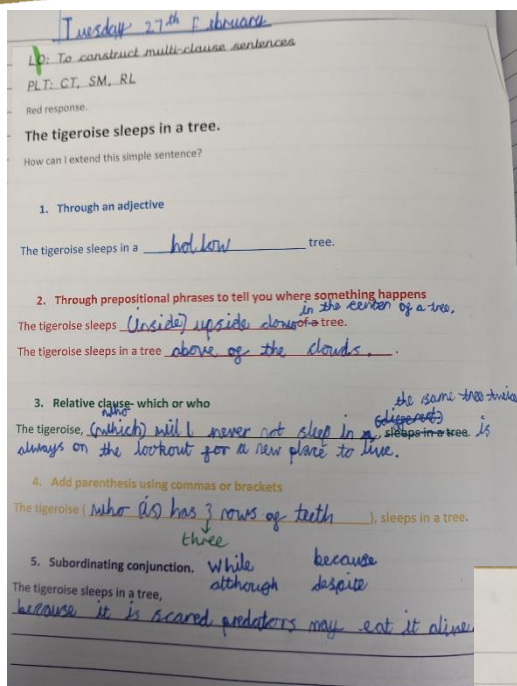 Tuesday 27th February
LO: To construct multi-clause sentences
PLT: CT, SM, RL
Red response.
The tigeroise sleeps in a tree.
How can I extend this simple sentence?
1. Through an adjective
The tigeroise sleeps in a hollow tree.
2. Through prepositional phrases to tell you where something happens
in the center of a tree,
The tigeroise sleeps (inside) upside down of a tree.
The tigeroise sleeps in a tree above of the clouds.
3. Relative clause- which or who
the same tree twice
who (different)
The tigeroise, (which) will never not sleep in a, sleeps in a tree. is
always on the lookout for a new place to live.
4. Add parenthesis using commas or brackets
The tigeroise (who is) has 3 rows of teeth ), sleeps in a tree.
three
5. Subordinating conjunction. While because
although despite
The tigeroise sleeps in a tree,
because it is scared predators may eat it alive.